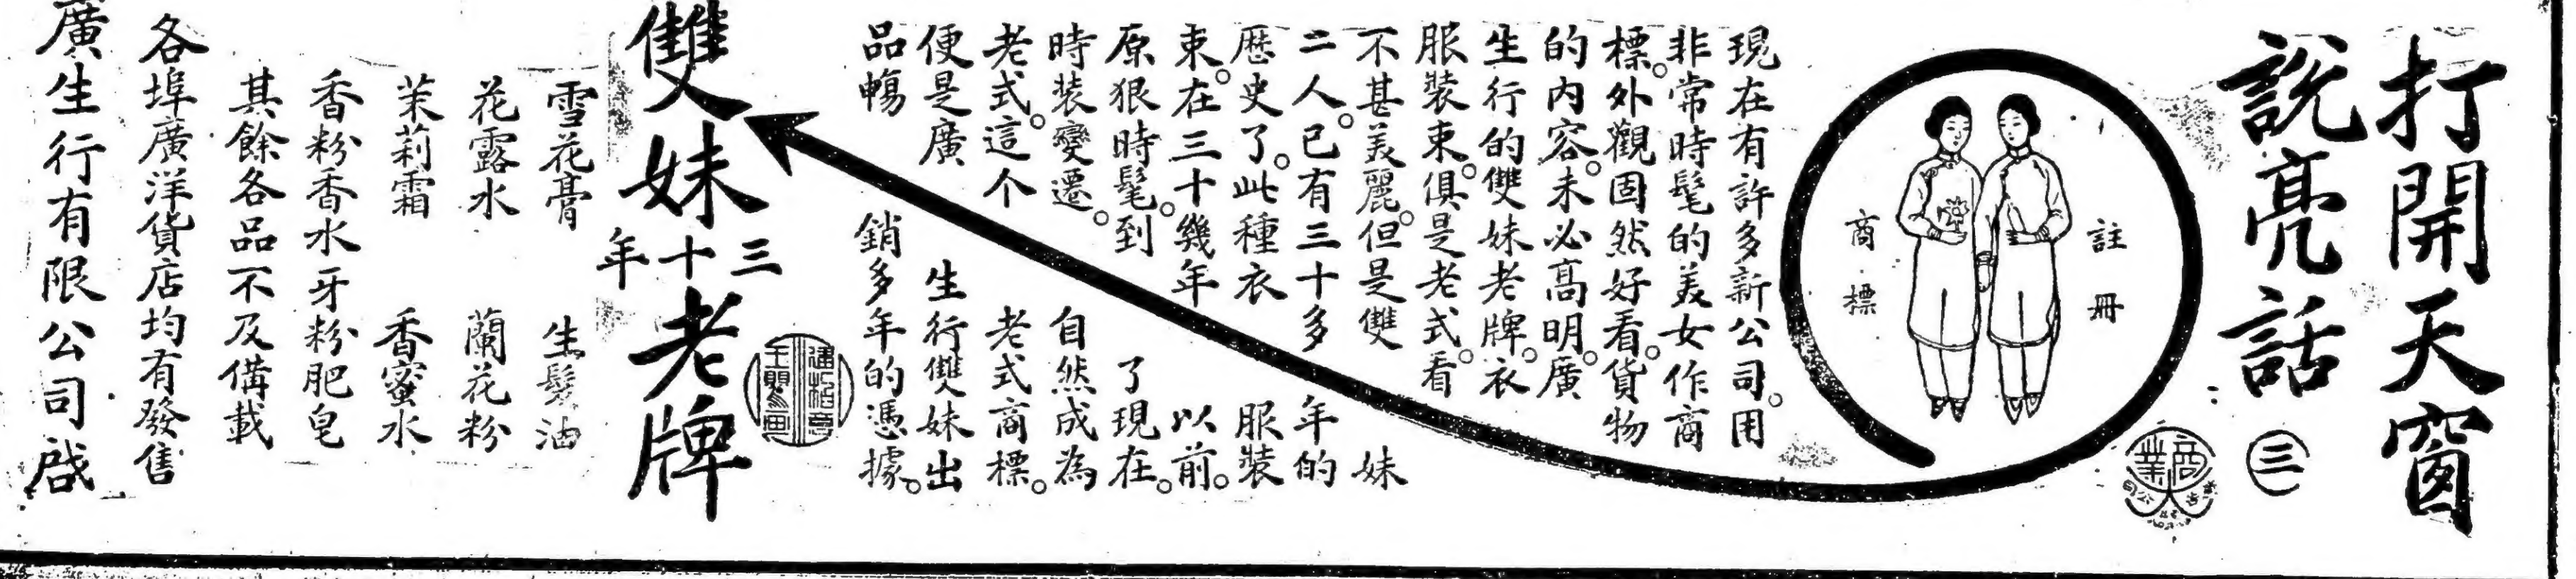 打開天窗
說亮話
㊂
註冊
商標
現在有許多新公司。用
非常時髦的美女作商
標。外觀固然好看。貨物
的內容。未必高明。廣
生行的雙妹老牌。衣
服裝束。俱是老式。看
不甚美麗。但是雙妹
二人。已有三十多年的
歷史了。此種衣服裝
束。在三十幾年以前。
原狠時髦。到了現在。
時裝變遷。自然成為
老式。這个老式商標。
便是廣生行雙妹出
品暢銷多年的憑據。
雙妹老牌
三十年
雪花膏 生髮油
花露水 蘭花粉
茉莉霜 香蜜水
香粉香水牙粉肥皂
其餘各品不及備載
各埠廣洋貨店均有發售
廣生行有限公司啟